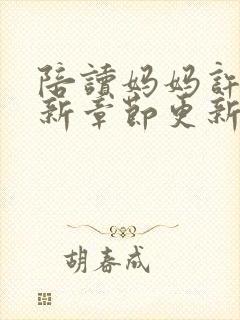 陪讀妈妈許
新章節更新
胡春成